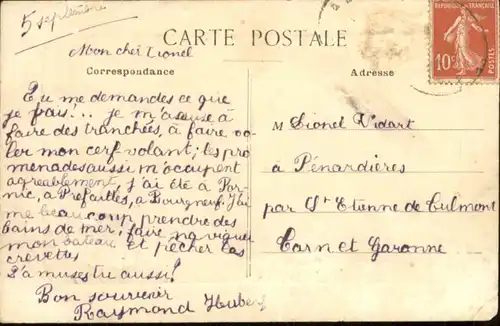 5 septembre
CARTE POSTALE
RÉPUBLIQUE FRANÇAISE
10c
POSTES
Mon cher Lionel
Correspondance
Adresse
Tu me demandes ce que
je fais... je m'amuse à
faire des tranchées, à faire vo-
ler mon cerf volant; les pro
menades aussi m'occupent
agreablement j'ai été à Por-
nic, à Prefailles, à Bourgneuf. J'ai
me beaucoup prendre des
bains de mer, faire naviguer
mon bateau et pêcher les
crevettes
T'amuses tu aussi!
Bon souvenir
Raymond Hubert
M Lionel Vidart
à Pénardières
par St Etienne de Tulmont
Tarn et Garonne